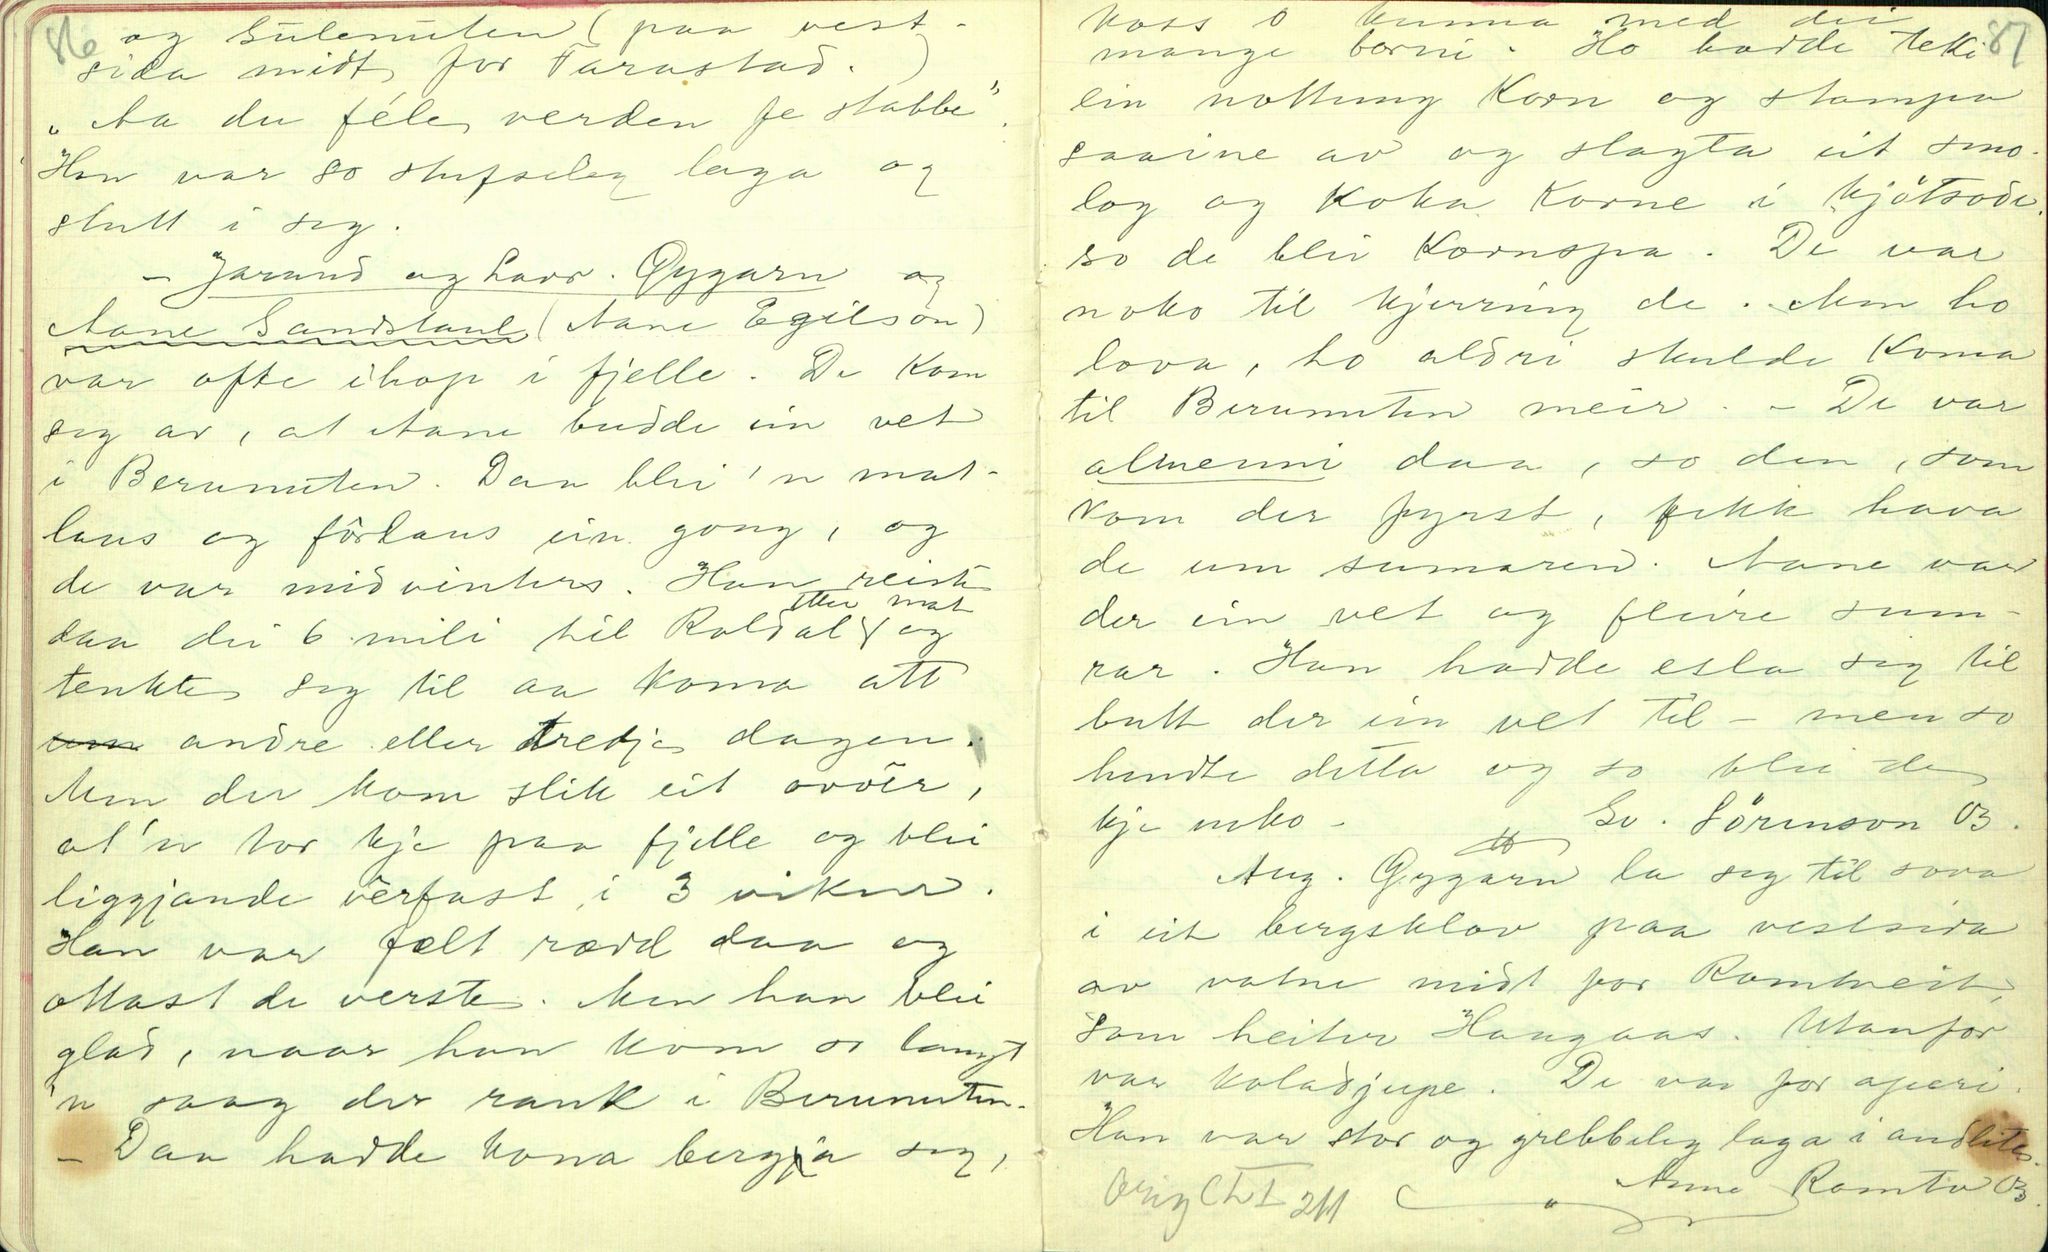 86
og Gulenuten (paa vest-
sida midt for Tarastad.)
„Aa du féle verden fe stabbe".
Han var so stufseleg laga og
stutt i seg.
- Jarand og Lavr. Gygarn og
Aane Sandstaul (Aane Egilson)
var ofte ihop i fjelle. De kom
seg av, at Aane budde ein vet
i Berunuten. Daa blei 'n mat-
laus og fôrlaus ein gong, og
de var midvinters. Han reiste
etter mat
daa dei 6 mili til Roldal og
tenkte seg til aa koma att
andre eller tredje dagen.
Men der kom slik eit ovvêr,
at 'n tor kje paa fjelle og blei
liggjande vêrfast i 3 vikur.
Han var fælt rædd daa og
ottast de verste. Men han blei
glad, naar han kom so langt
'n saag der rauk i Berunuten.
- Daa hadde kona bergja seg,
87
koss o kunna med dei
mange borni. Ho hadde teki
ein nottung Korn og stampa
saaine av og slagta eit smo-
log og koka korne i kjötsode,
so de blei Kornspa. De var
noko til kjerring de. Men ho
lova, ho aldri skulde koma
til Berunuten meir. - De var
almenni daa, so den, som
kom der fyrst, fekk hava
de um sumaren. Aane var
der ein vet og fleire sum-
rar. Han hadde esla seg til
butt der ein vet til - men so
hendte detta og so blei de
kje noko - Sv. Sörenson 03.
Aug. Gygarn la seg til sova
i eit bergsklov paa vestsida
av vatne midt for Romtveit,
som heiter Haugaas. Utanfor
var koladjupe. De var for aperi.
Han var stor og grebbeleg laga i andlete.
Anne Romtv 03.
Orig CLI 211